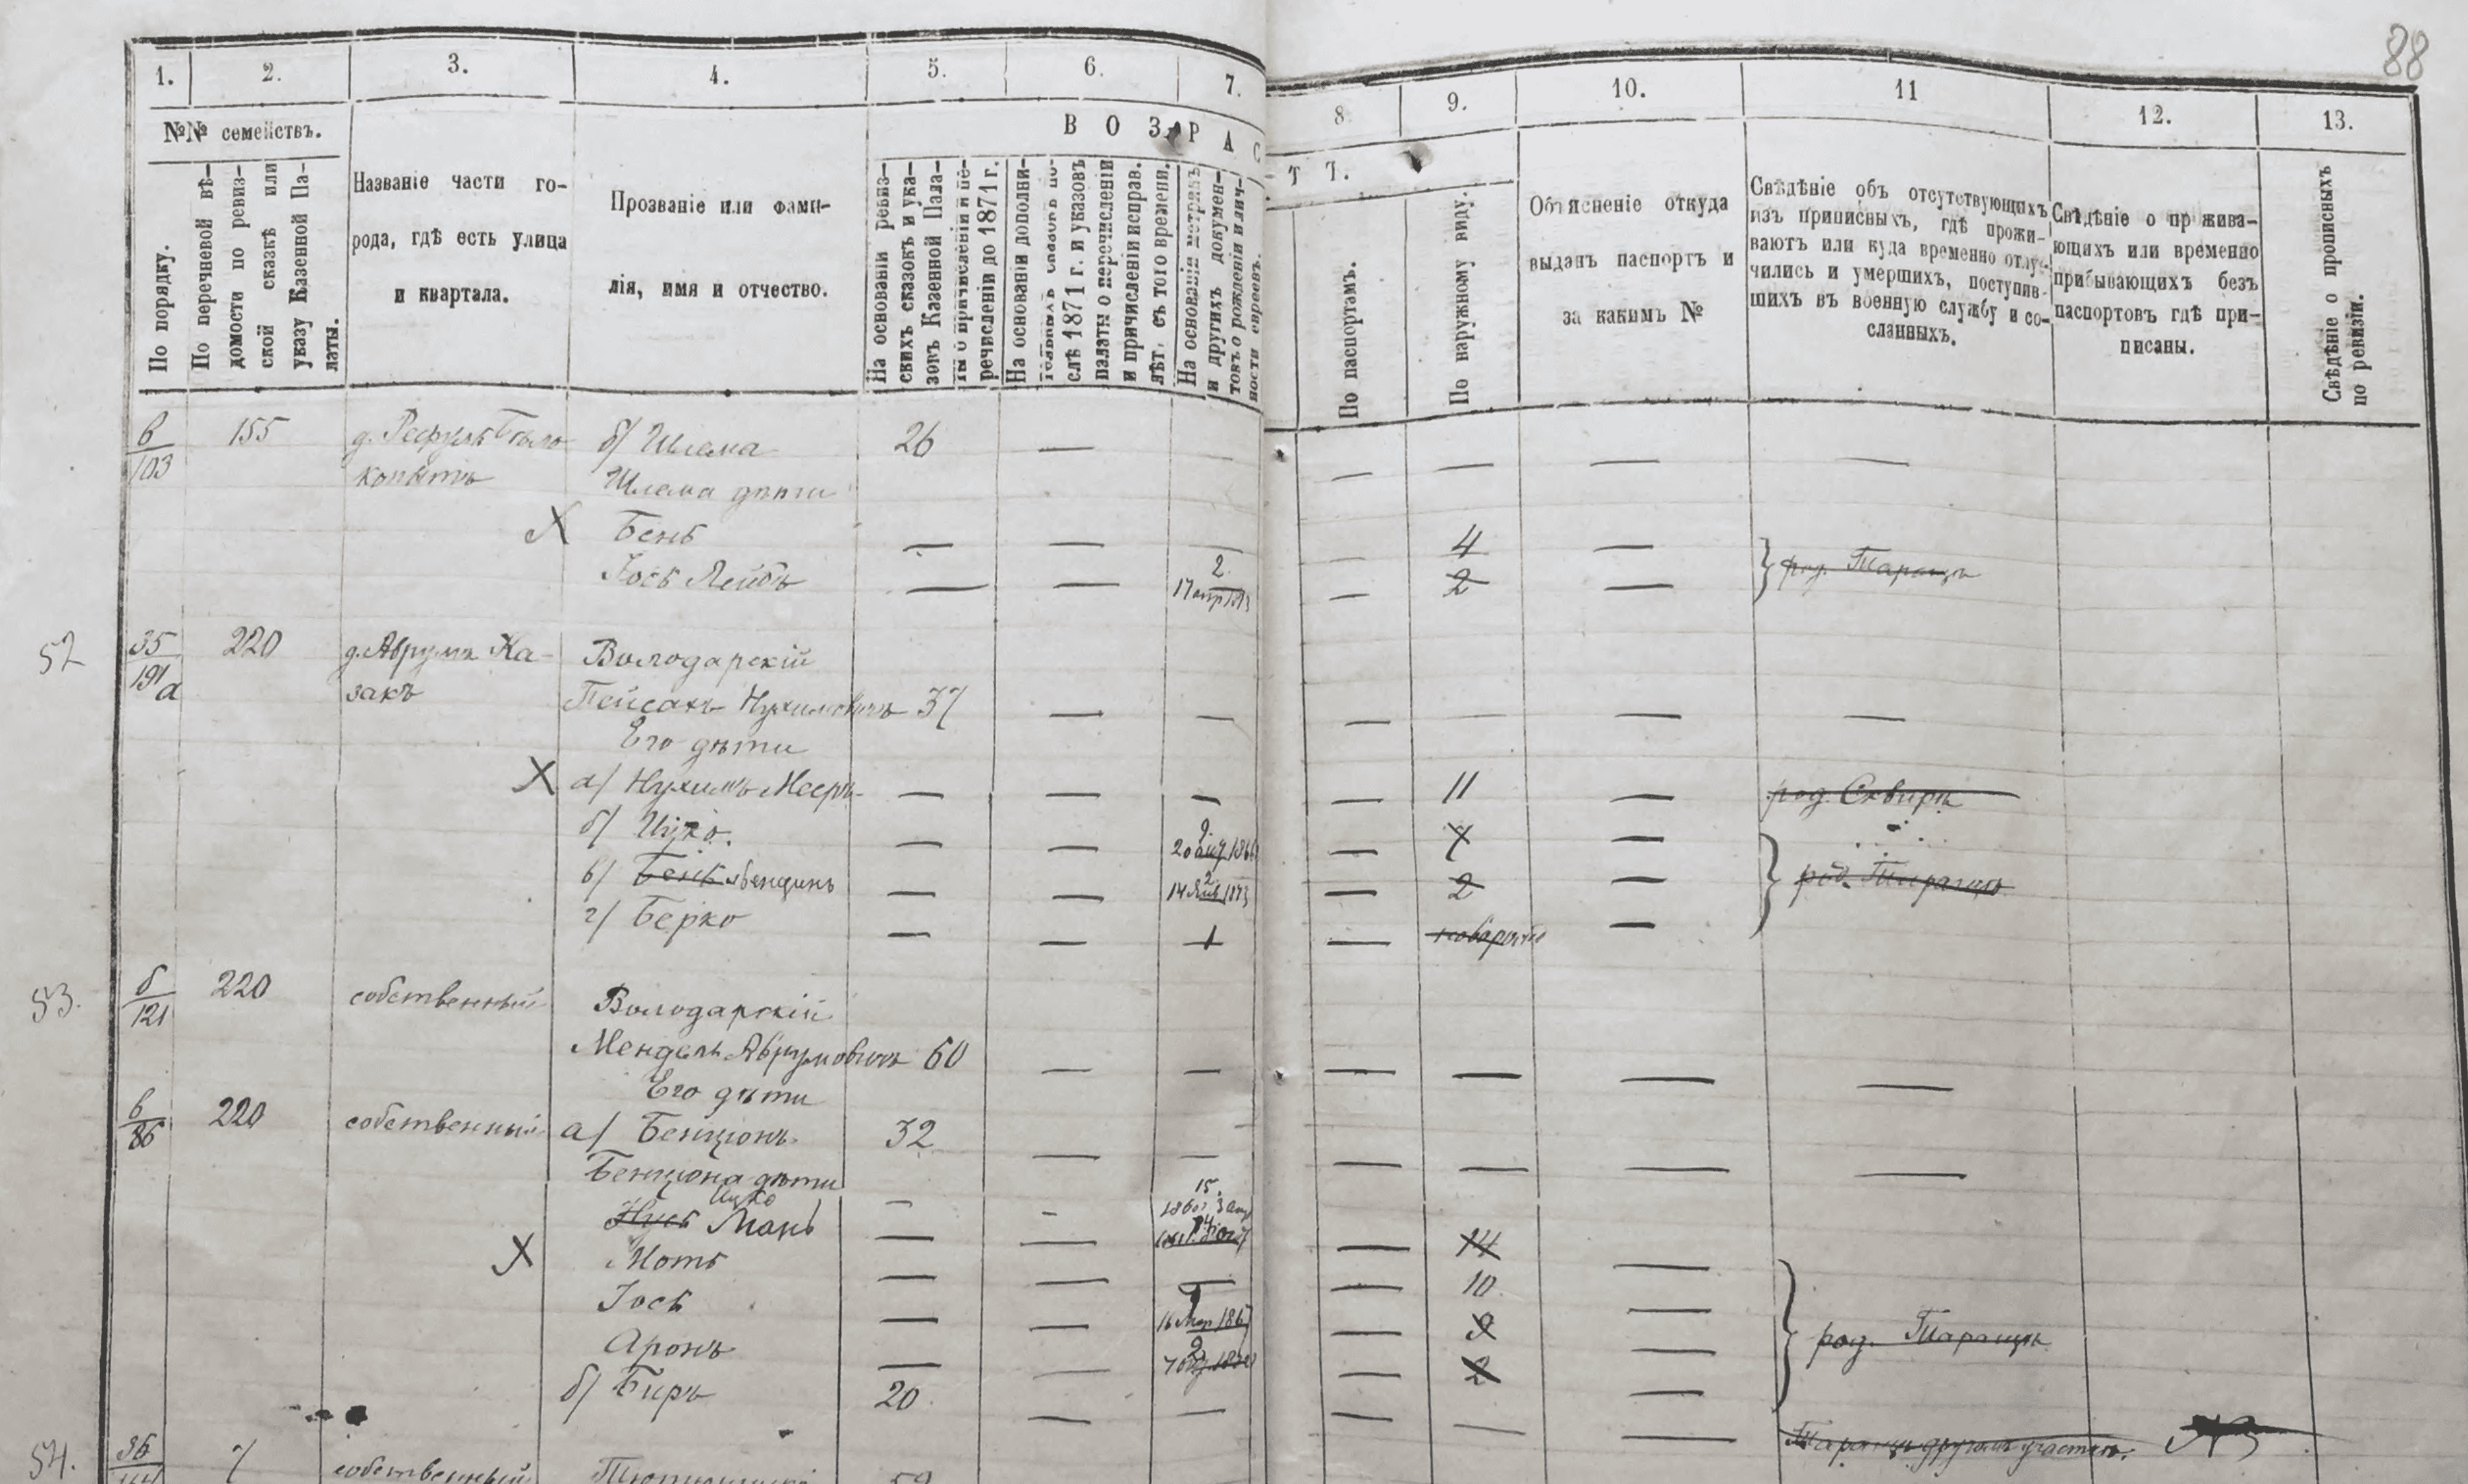 88
1. 2. 3. 4. 5. 6. 7. 8 9. 10. 11 12. 13.
№№ семействъ.
По порядку.
По перечневой вѣ-
домости по ревиз-
ской сказкѣ или
указу Казенной Па-
латы.
Названіе части го-
рода, гдѣ есть улица
и квартала.
Прозваніе или фами-
лія, имя и отчество.
ВОЗРАСТЪ.
На основаніи ревиз-
скихъ сказокъ и ука-
зовъ Казенной Пала-
ты о причисленіи и пе-
речисленіи до 1871 г.
На основаніи дополни-
тельныхъ сказокъ по-
слѣ 1871 г. и указовъ
палаты о перечисленіи
и причисленіи исправ.
лѣт, съ того времени.
На основаніи метрикъ
и другихъ докумен-
товъ о рожденіи и лич-
ности евреевъ.
По паспортамъ.
По наружному виду.
Объясненіе откуда
выданъ паспортъ и
за какимъ №
Свѣдѣніе объ отсутствующихъ
изъ приписныхъ, гдѣ прожи-
ваютъ или куда временно отлу-
чились и умершихъ, поступив-
шихъ въ военную службу и со-
сланныхъ.
Свѣдѣніе о прожива-
ющихъ или временно
прибывающихъ безъ
паспортовъ гдѣ при-
писаны.
Свѣдѣніе о прописныхъ
по ревизіи.
в/103 155 д. Бѣло б/ Шлема 26 — — — — —
копытъ Шлема дѣти
X Бень — — — — 4 —
Іось Лейбъ — — 2 17 апр — 2 — род. Таращѣ
52 35/191 а 220 д. Аврума Ка- Володарскій
закъ Пейсахъ Нухимовичъ 37 — — — — — —
Его дѣти
X а/ Нухимъ Мееръ — — — — 11 — род. Сквирѣ
б/ Ицко — — 9 20 — 7 —
в/ Бень — — 2 14 Янв 1873 — 2 — род. Таращѣ
г/ Берко — — 1 — —
53. б/121 220 собственный Володарскій
Мендель Аврумовичъ 60 — — — — — —
Его дѣти
в/86 220 собственный а/ Бенціонъ 32 — — — — — —
Бенціона дѣти
Ицко — — 15.
Нусь Мань — — — 14 —
X Моть — — — — 10 —
Іось — — 16 Мар 1867 — 9 — род. Таращѣ
Аронъ — — 2 7 — 2 —
б/ Биръ 20 — — — — —
54. 36 7 собственный 59